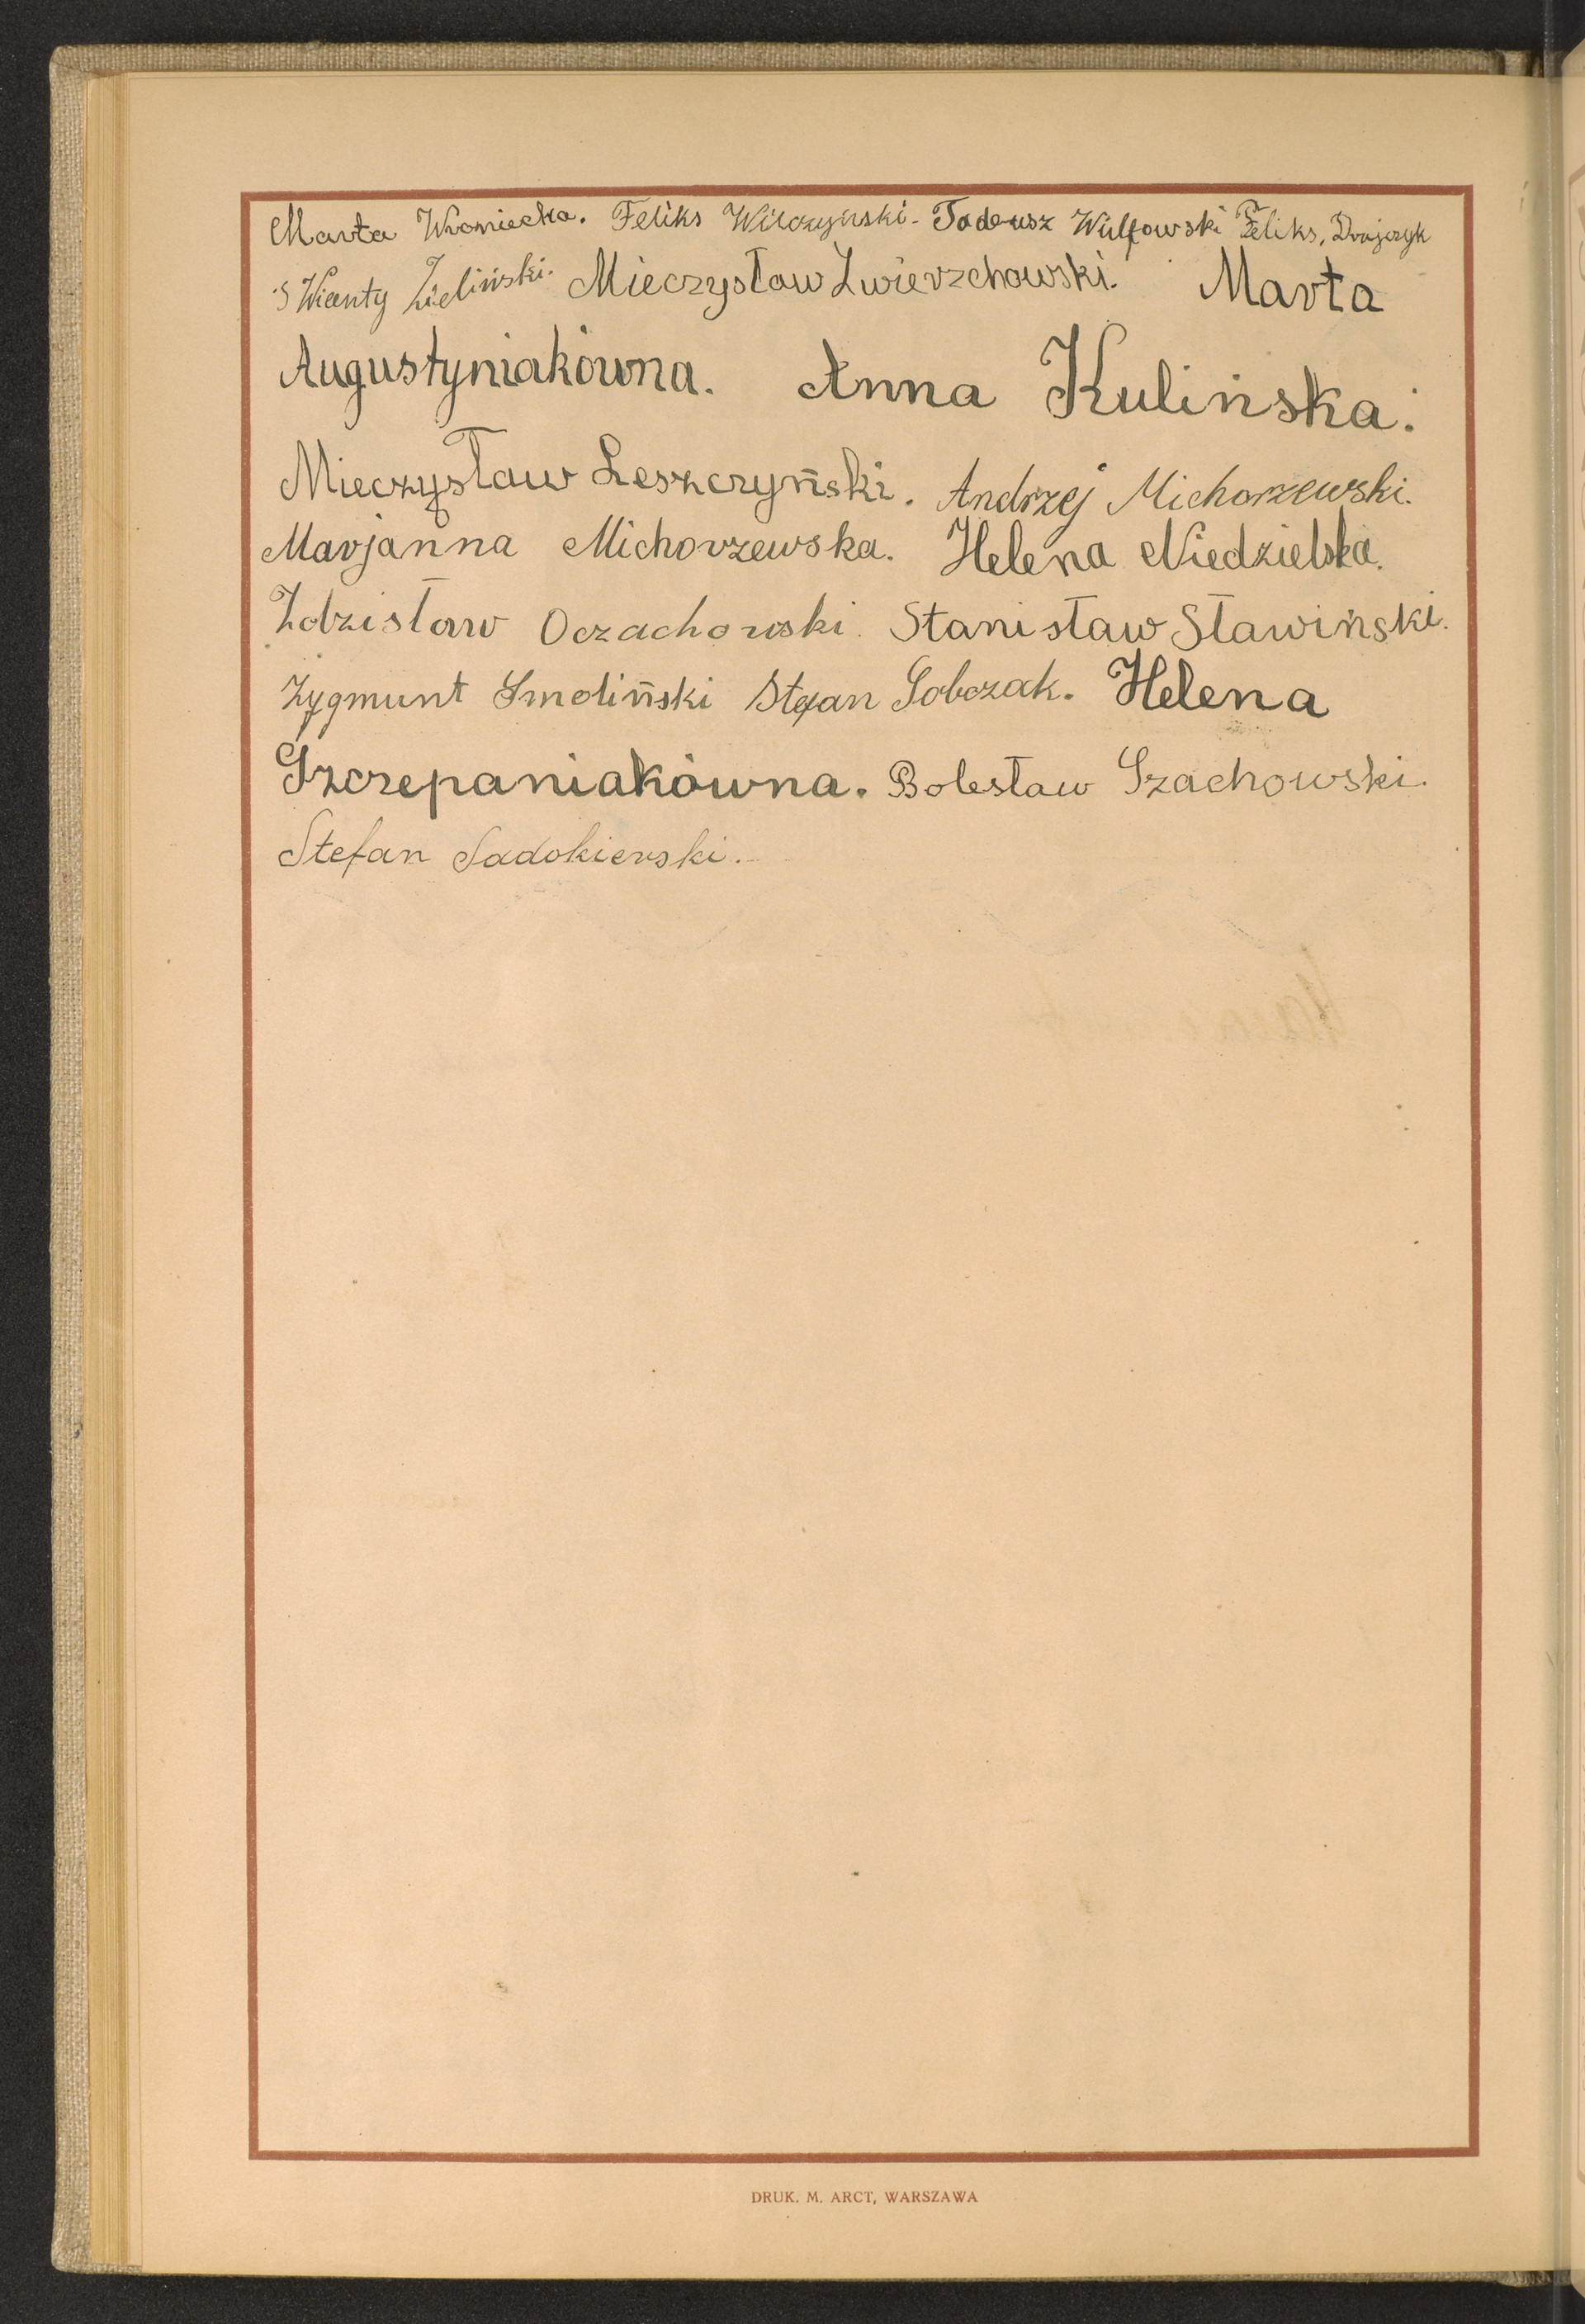 Marta Woniecka. Feliks Wilczyński - Tadeusz Wulfowski Feliks, Drajczyk
Wicenty Zieliński. Mieczysław Zwierzchowski. Marta
Augustyniakówna. Anna Kulińska.
Mieczysław Leszczyński. Andrzej Michorzewski.
Marjanna Michorzewska. Helena Niedzielska.
Zdzisław Oczachowski. Stanisław Sławiński.
Zygmunt Smoliński Stefan Sobczak. Helena
Szczepaniakówna. Bolesław Szachowski.
Stefan Sadokierski.
DRUK. M. ARCT, WARSZAWA